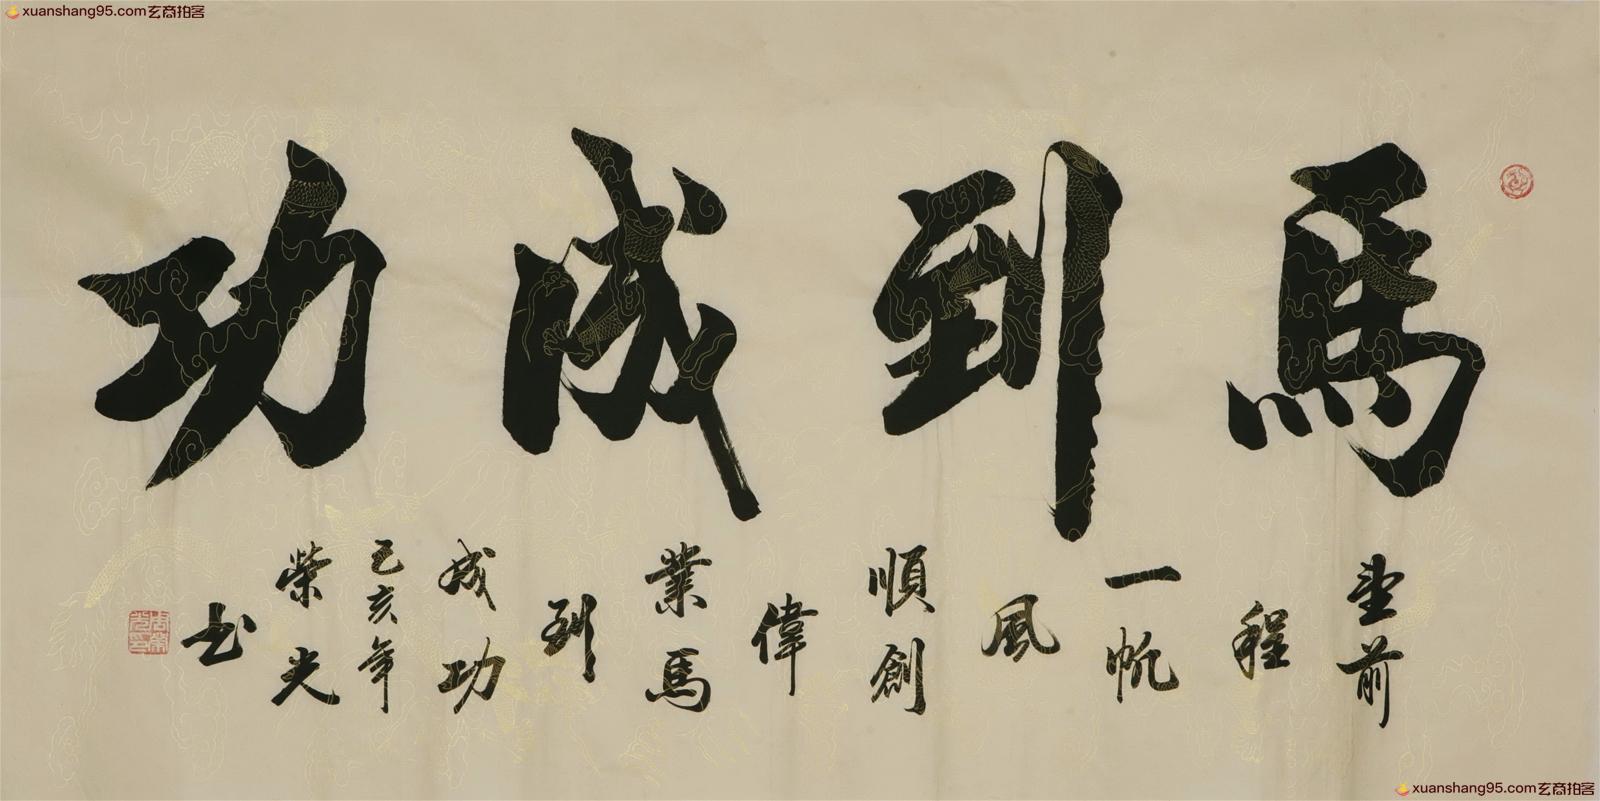 xuanshang95.com玄商拍客
馬到成功
坐前
程
一帆
風
順創
偉
業馬
到
成功
己亥年
榮光
书
xuanshang95.com玄商拍客